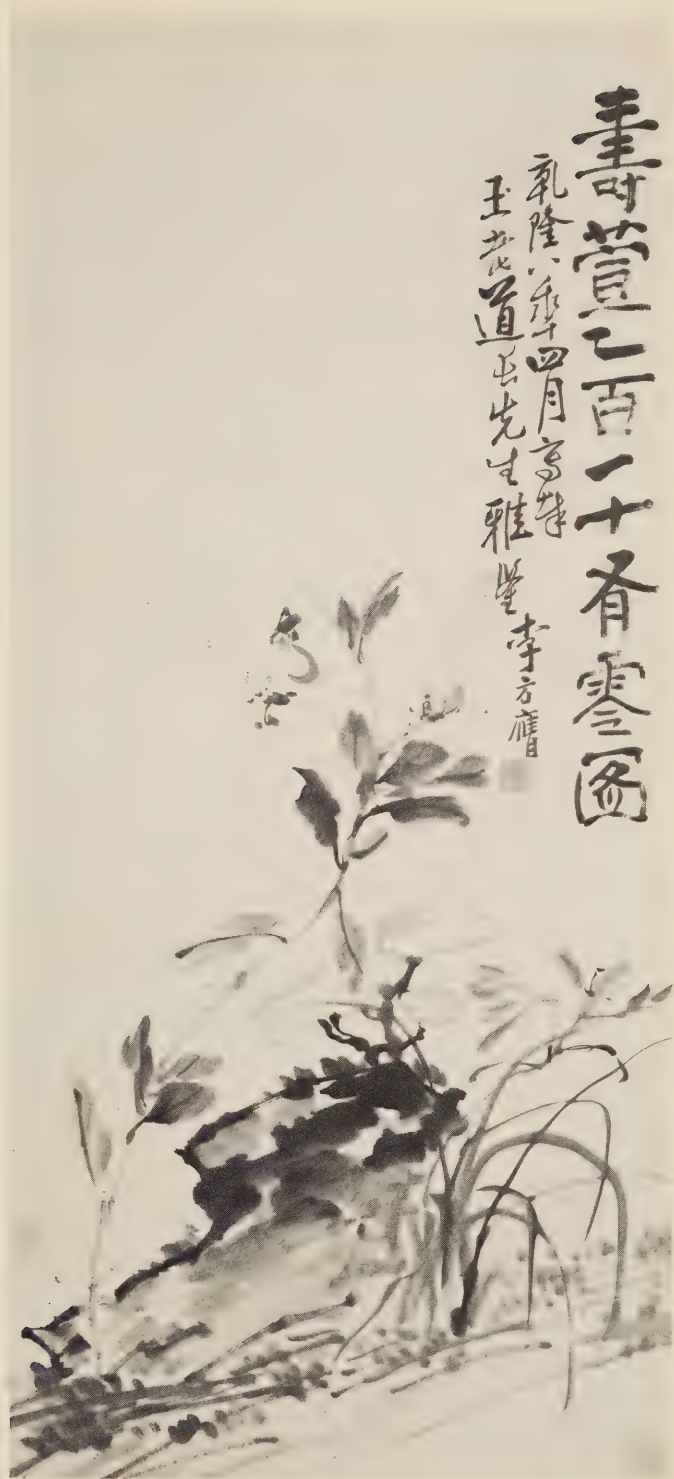 壽萱乙百一十有零图
乾隆八秊四月寫奉
玉老道長先生雅鑒
李方膺